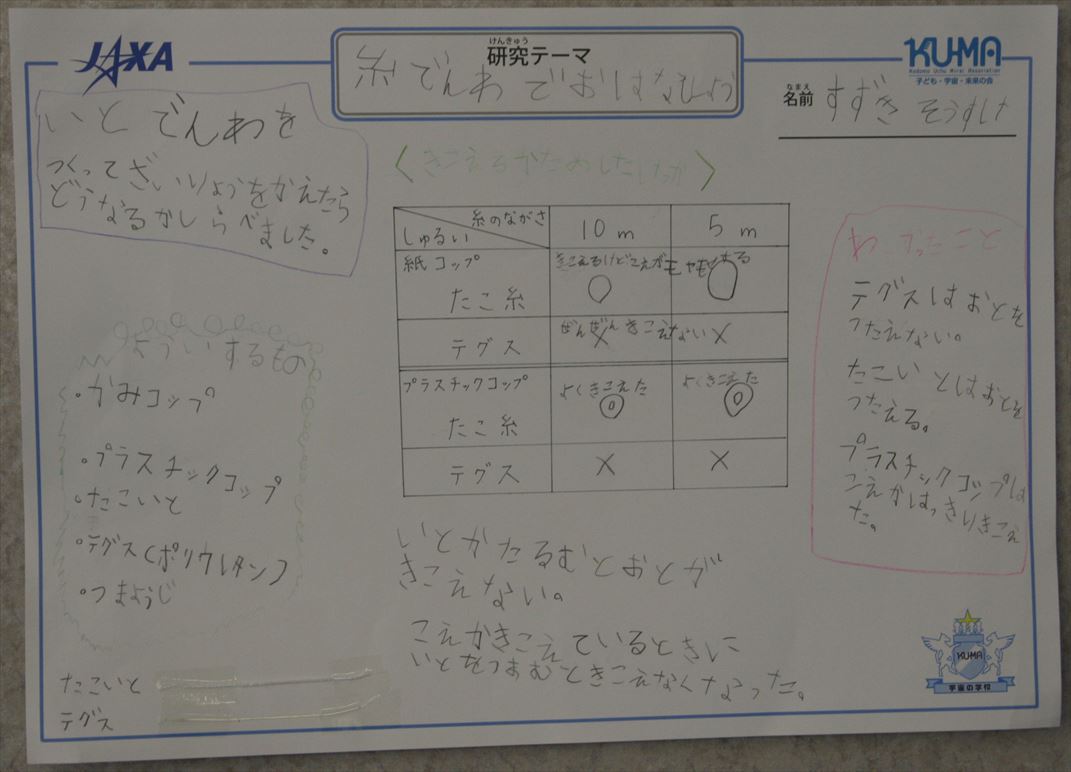 JAXA
けんきゅう
研究テーマ
糸でんわでおはなしひょう
KUMA
Kodomo Uchu Mirai Association
子ども・宇宙・未来の会
なまえ
名前 すずき そうすけ
いと でんわを
つくってざいりょうをかえたら
どうなるかしらべました。
よういするもの
・かみコップ
・プラスチックコップ
・たこいと
・テグス(ポリウレタン)
・つまようじ
たこいと
テグス
〈きこえるかためしたけっか〉
糸のながさ
しゅるい
10m
5m
紙コップ
きこえるけどこえがもやもやする
たこ糸 ○ ○
テグス
ぜんぜんきこえない
× ×
プラスチックコップ
よくきこえた よくきこえた
たこ糸 ◎ ◎
テグス × ×
いとがたるむとおとが
きこえない。
こえがきこえているときに
いとをつまむときこえなくなった。
わかったこと
テグスはおとを
つたえない。
たこいとはおとを
つたえる。
プラスチックコップは
こえがはっきりきこえ
た。
KUMA
宇宙の学校